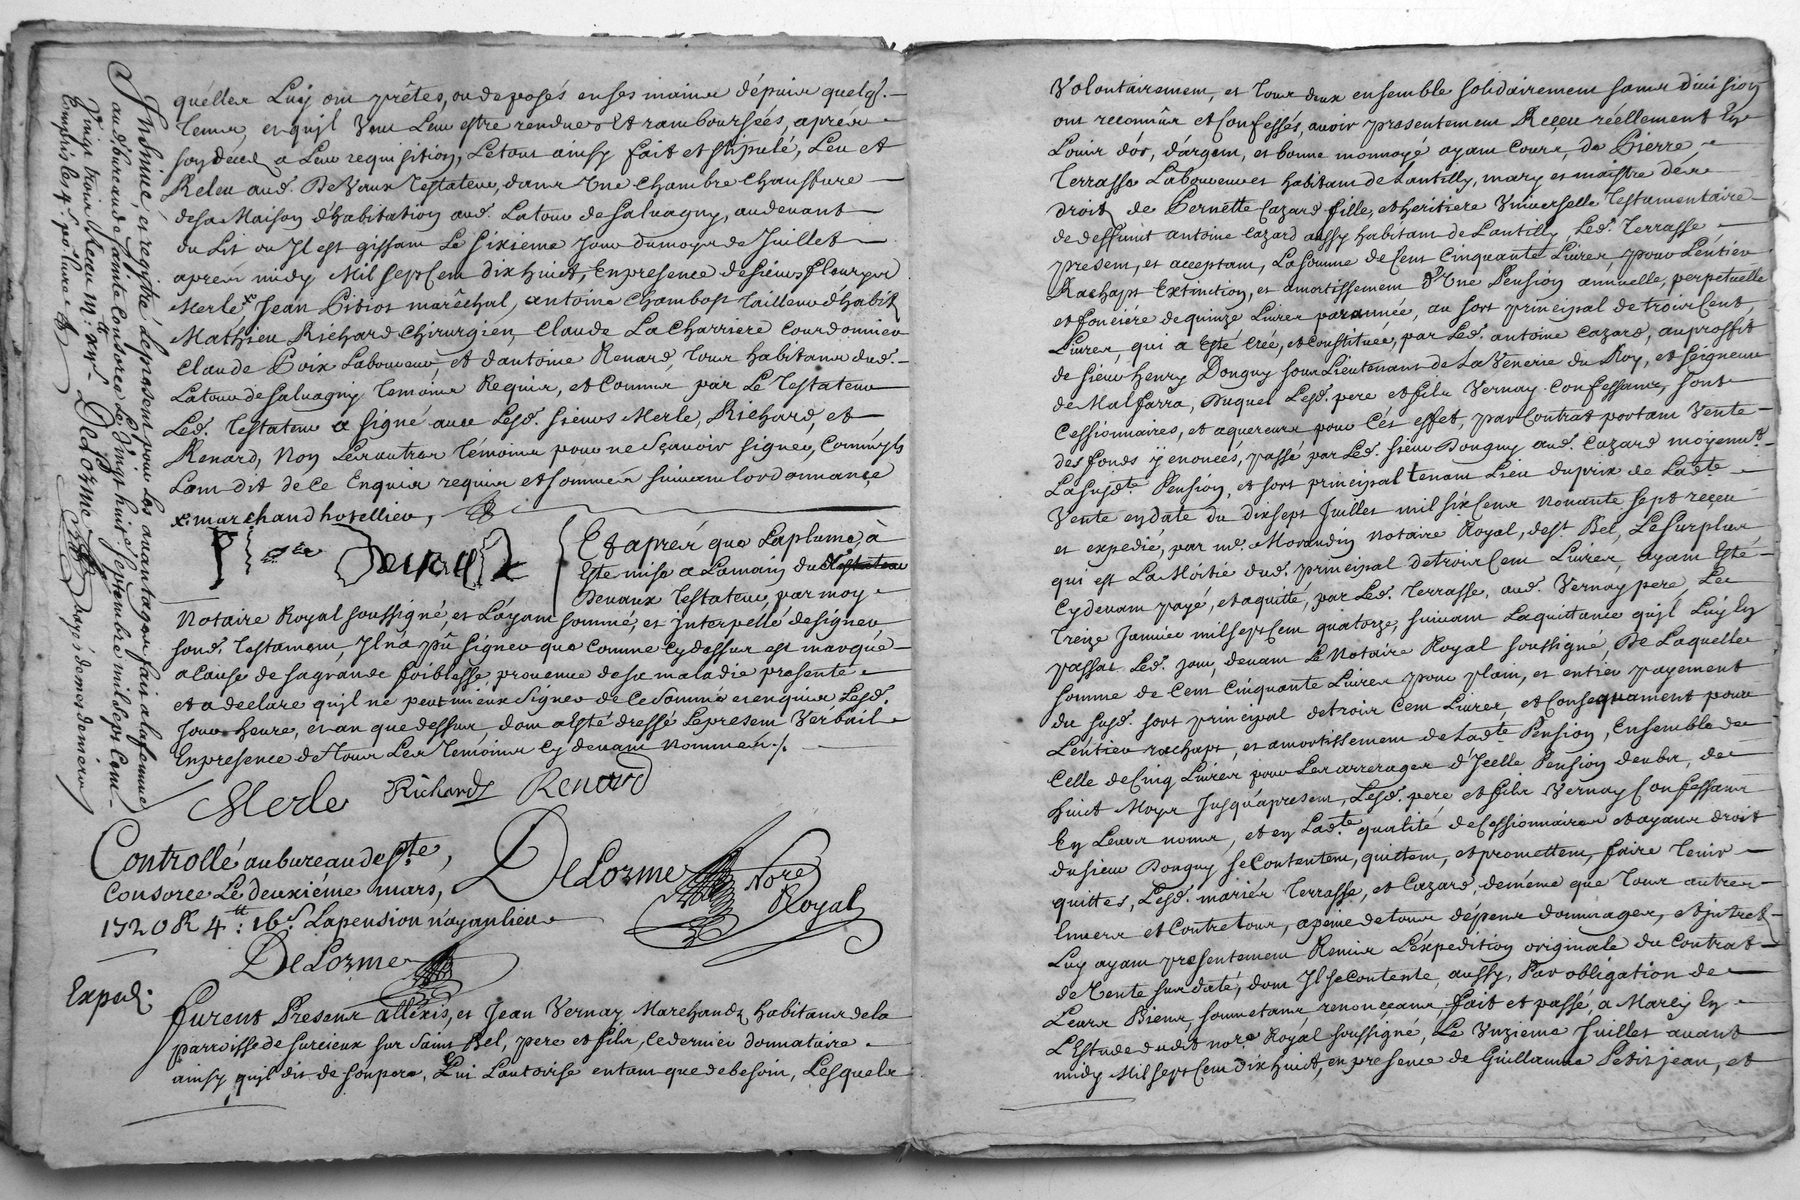 quelles Luy ont prêtés, ou deposés en ses mains dépuis quelq.
Temps, et qu'jl Veut Leur estre rendues Et ramboursées, apres
son deced a Leur requisition, Le tout ainsy fait et stipulé, Leu et
Releu aud. DeVaux Testateur, dans Une chambre chauffure
de sa Maison d'habitation aud. Latour de Salvagny, au devant
du Lit ou Jl est gissant Le Sixieme Jour du moys de Juillet
apres midy Mil sept Cent dix huit, En presence de sieurs fleury
Merle x Jean Pitiot marêchal, antoine Chambost Tailleur d'habit
Mathieu Richard Chirurgien, Claude La Charriere Courdonnier
Claude Poix Laboureur, et d'antoine Renard, Tous habitans dud.
Latour de Salvagny Temoins Requis, et Connus par Le Testateur
Led. Testateur a signé avec Lesd. sieurs Merle, Richard, et
Renard, Non Les autres Témoins pour ne Sçavoir signer, Comm'jls
L'ont dit de Ce Enquis requis et sommés suivant lordonnance
x: marchand hotellier,
devaux
Et aprés que La plume à
Esté mise a La main du Testateur
Devaux Testateur, par moy
Notaire Royal soussigné, et L'ayant sommé, et Interpellé de signer
sond. Testament, Jl n'a pû signer que comme Cy dessus est marqué
a Cause de sa grande foiblesse, provenue de sa maladie presente
et a declaré qu'jl ne peut mieux signer de Ce sommé et enquis Lesd.
Jour heure, et an que dessus, dont a Esté dressé Le present Verbail
En presence de Tous Les Temoins Cy devant Nommés ./.
Merle Richard Renard
Controllé au bureau de Ste
Consorce Le deuxiéme mars,
1720 R 4tt: 16s. La pension n'ayant lieu
DeLorme Nore Royal
DeLorme
Insinué, et registré Le present pour Les avantages faits a la femme
au d. bureau de Sainte Consorce Le Vingt huit Septembre mil sept Cent
Vingt trois Receu
DeLorme
Exped.
furent Presens alléxis, et Jean Vernay Marchands habitans de la
parroisse de surcieux sur Saint Bel, pere et fils, Ce dernier donnataire
ainsy qu'jl dit de son pere, Qui L'autorise entant que de besoin, Lesquels
Volontairement, et Tous deux ensemble solidairement sans division
ont reconnûs et Confessés, avoir presentement Reçeu réellement En
Louis d'or, d'argent, et bonne monnoyé ayant Cours, de Pierre
Terrasse Laboureur et habitant de Lantilly, mary et maistre des
droits de Pernette Cazard fille, et héritiere Vniverselle Testamentaire
de deffunt antoine Cazard aussy habitant de Lantilly Led. Terrasse
present, et acceptant, La somme de Cent Cinquante Livres, pour L'entier
Rachapt Extinction, et amortissement d'Une Pension annuelle, perpetuelle
et fonciere de quinze Livres par année, au sort principal de trois Cent
Livres, qui a Esté Créé, et Constituée, par Led. antoine Cazard, au proffit
de sieur henry Dongny sous Lieutenant de La Venerie du Roy, et Seigneur
de Malfarra, Duquel Lesd. pere et fils Vernay Confessans, sont
Cessionnaires, et aquereurs pour Cés effet, par Contrat portant Vente
des fonds y enoncés, passé par Led. sieur Dongny aud. Cazard moyennt.
La susdte. Pension, et sort principal tenant Lieu du prix de Ladte
Vente en date du dix sept Juillet mil six Cens Nonante sept reçeu
et expedié, par me. Morandin Notaire Royal, de St Bel, Le surplus
qui est La Moitié dud. principal de trois Cent Livres, ayant Esté
Cy devant payé, et aquitté, par Led. Terrasse, aud. Vernay pere, Le
Treize Janvier mil sept Cent quatorze, suivant La quittance qu'jl Luy En
passat Led. jour, devant Le Notaire Royal soussigné, De Laquelle
somme de Cent Cinquante Livres pour plain, et entier payement
du susd. sort principal de trois Cent Livres, et Consequament pour
L'entier rachapt, et amortissement de Ladte Pension, Ensemble de
Celle de Cinq Livres pour Les arrerages d'Jcelle Pension deubs, de
huit Moys Jusqu'apresent, Lesd. pere et fils Vernay Confessans
En Leurs noms, et en Ladte. qualité de Cessionnaires et ayans droit
du sieur Dongny se Contentent, quittent, et promettent, faire Tenir
quittes, Lesd. mariés Terrasse, et Cazard, de même que Tous autres
Envers et Contre tous, a peine de tous dépens dommages, et jntrets
Luy ayant presentement Remis L'expedition originale du Contrat
de Vente sus daté, dont Jl se contente, aussy, Par obligation de
Leurs Biens, soumetans, renonçeans, fait et passé, a Marcy En
L'Estude dudit nore Royal soussigné, Le Vnzieme Juillet avant
midy Mil sept Cent dix huit, en presence de Guillaume Petitjean, et